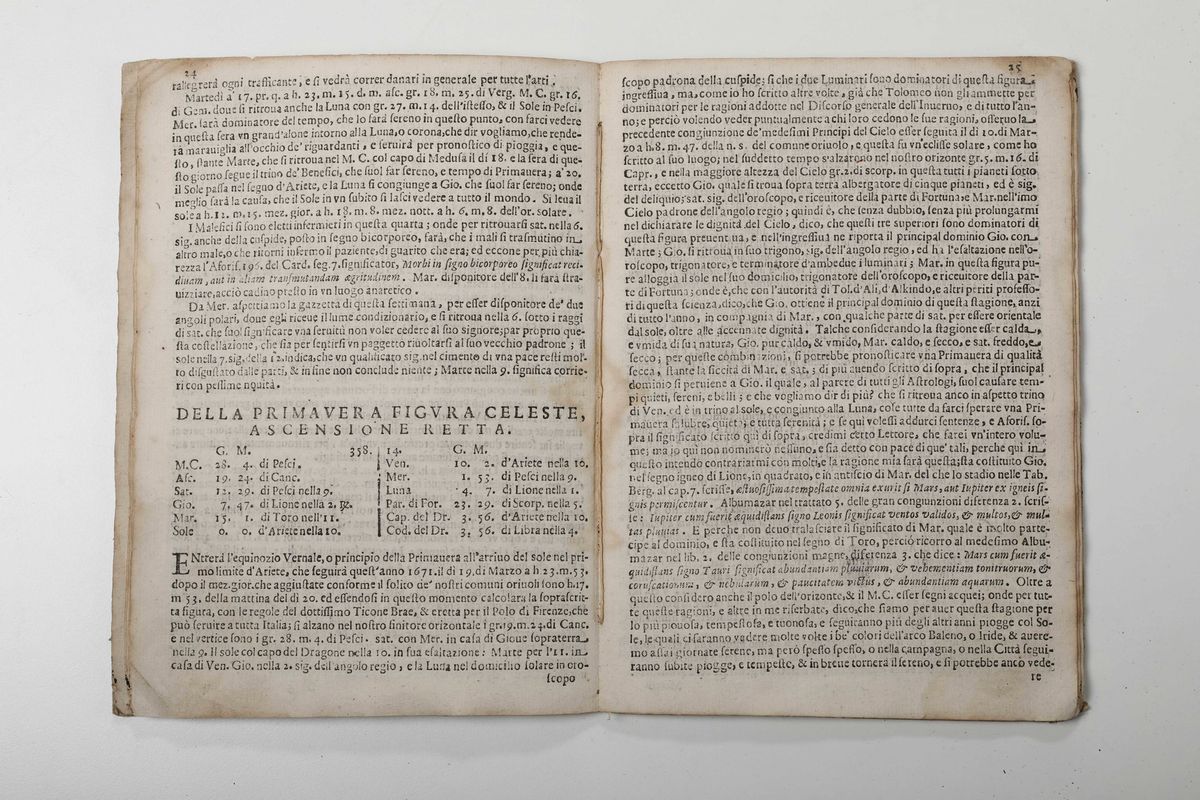 24
rallegrerà ogni trafficante, e si vedrà correr danari in generale per tutte l'arti.
Martedì a' 17. pr. q. a h. 23. m. 15. d. m. asc. gr. 18. m. 25. di Verg. M. C. gr. 16.
di Gem. doue si ritroua anche la Luna con gr. 27. m. 14. dell'istesso, & il Sole in Pesci.
Mer. sarà dominatore del tempo, che lo farà sereno in questo punto, con farci vedere
in questa sera vn grand'alone intorno alla Luna, o corona, che dir vogliamo, che rende-
rà marauiglia all'occhio de' riguardanti, e seruirà per pronostico di pioggia, e que-
sto, stante Marte, che si ritroua nel M. C. col capo di Medusa il dì 18. e la sera di que-
sto giorno segue il trino de' Benefici, che suol far sereno, e tempo di Primauera; a' 20.
il Sole passa nel segno d'Ariete, e la Luna si congiunge a Gio. che suol far sereno; onde
meglio sarà la causa, che il Sole in vn subito si lasci vedere a tutto il mondo. Si leua il
sole a h. 12. m. 15. mez. gior. a h. 18. m. 8. mez. nott. a h. 6. m. 8. dell'or. solare.
I Malefici si sono eletti infermieri in questa quarta; onde per ritrouarsi sat. nella 6.
sig. anche della cuspide, posto in segno bicorporeo, farà, che i mali si trasmutino in
altro male, o che ritorni infermo il paziente, di guarito che era; ed eccone per più chia-
rezza l'Aforis. 196. del Card. seg. 7. significator, Morbi in signo bicorporeo significat reci
diuam, aut in aliam transmutandam ægritudinem. Mar. disponitore dell'8. li farà stra-
uizziare, acciò cadino presto in vn luogo anaretico.
Da Mer. aspettiamo la gazzetta di questa settimana, per esser disponitore de' due
angoli polari, doue egli riceue il lume condizionario, e si ritroua nella 6. sotto i raggi
di sat. che suol significare vna seruitù non voler cedere al suo signore; par proprio que-
sta costellazione, che sia per sentirsi vn paggetto riuoltarsi al suo vecchio padrone; il
sole nella 7. sig. della 12. indica, che vn qualificato sig. nel cimento di vna pace resti mol-
to disgustato dalle parti, & in fine non conclude niente; Marte nella 9. significa corrie-
ri con pessime nquità.
DELLA PRIMAVERA FIGVRA CELESTE,
ASCENSIONE RETTA.
G. M. 358. 14. G. M.
M.C. 28. 4. di Pesci. Ven. 10. 2. d'Ariete nella 10.
Asc. 19. 24. di Canc. Mer. 1. 53. di Pesci nella 9.
Sat. 12. 29. di Pesci nella 9. Luna 4. 7. di Lione nella 1.
Gio. 7. 47. di Lione nella 2. ꝶ. Par. di For. 23. 29. di Scorp. nella 5.
Mar. 15. 1. di Toro nell'11. Cap. del Dr. 3. 56. d'Ariete nella 10.
Sole 0. 0. d'Ariete nello 10. Cod. del Dr. 3. 56. di Libra nella 4.
ENtrerà l'equinozio Vernale, o principio della Primauera all'arriuo del sole nel pri-
mo limite d'Ariete, che seguirà quest'anno 1671. il dì 19. di Marzo a h 23. m. 53.
dopo il mez. gior. che aggiustate conforme il solito de' nostri comuni oriuoli sono h. 17.
m 53. della mattina del dì 20. ed essendosi in questo momento calcolara la soprascrit-
ta figura, con le regole del dottissimo Ticone Brae, & eretta per il Polo di Firenze, che
può seruire a tutta Italia; si alzano nel nostro finitore orizontale i gr. 19. m. 24. di Canc.
e nel vertice sono i gr. 28. m. 4. di Pesci. sat. con Mer. in casa di Gioue sopraterra
nella 9. Il sole col capo del Dragone nella 10. in sua esaltazione: Marte per l'11. in
casa di Ven. Gio. nella 2. sig. dell'angolo regio, e la Luna nel domicilio solare in oro-
scopo
25
scopo padrona della cuspide; sì che i due Luminati sono dominatori di questa figura
ingressiua, ma, come io ho scritto altre volte, già che Tolomeo non gli ammette per
dominatori per le ragioni addotte nel Discorso generale dell'Inuerno, e di tutto l'an-
no; e perciò volendo veder puntualmente a chi loro cedono le sue ragioni, osseruo la
precedente congiunzione de' medesimi Principi del Cielo esser seguita il dì 10. di Mar-
zo a h. 8. m. 47. della n. s. del comune oriuolo, e questa fu vn'eclisse solare, come ho
scritto al suo luogo; nel suddetto tempo s'alzarono nel nostro orizonte gr. 5. m. 16. di
Capr., e nella maggiore altezza del Cielo gr. 2. di scorp. in questa tutti i pianeti sotto
terra, eccetto Gio. quale si troua sopra terra albergatore di cinque pianeti, ed è sig.
del deliquio; sat. sig. dell'oroscopo, e riceuitore della parte di Fortuna; e Mar. nell'imo
Cielo padrone dell'angolo regio; quindi è, che senza dubbio, senza più prolungarmi
nel dichiarare le dignità del Cielo, dico, che questi tre superiori sono dominatori di
questa figura preuentiua, e nell'ingressiua ne riporta il principal dominio Gio. con
Marte; Gio. si ritroua in suo trigono, sig. dell'angolo regio, ed ha l'esaltazione nell'o-
roscopo, trigonatore, e terminatore d'ambedue i luminati; Mar. in questa figura pu-
re alloggia il sole nel suo domicilio, trigonatore dell'oroscopo, e riceuitore della par-
te di Fortuna; onde è, che con l'autorità di Tol. d'Ali, d'Alkindo, e altri periti professo-
ri di questa scienza, dico, che Gio. ottiene il principal dominio di questa stagione, anzi
di tutto l'anno, in compagnia di Mar., con qualche parte di sat. per essere orientale
dal sole, oltre alle accennate dignità. Talche considerando la stagione esser calda,
e vmida di sua natura, Gio. pur caldo, & vmido, Mar. caldo, e secco, e sat. freddo, e
secco; per queste combinazioni, si potrebbe pronosticare vna Primauera di qualità
secca, stante la siccità di Mar. e sat.; di più auendo scritto di sopra, che il principal
dominio si peruiene a Gio. il quale, al parere di tutti gli Astrologi, suol causare tem-
pi quieti, sereni, e belli; e che vogliamo dir di più? che si ritroua anco in aspetto trino
di Ven. ed è in trino al sole, e congiunto alla Luna, cose tutte da farci sperare vna Pri-
mauera salubre, quieta, e tutta serenità; e se qui volessi addurci sentenze, e Aforis. so-
pra il significato scritto quì di sopra, credimi certo Lettore, che farei vn'intero volu-
me; ma io quì non nominerò nessuno, e sia detto con pace di que' tali, perche quì in
questo intendo contrariarmi con molti, e la ragione mia sarà questa; sta costituito Gio.
nel segno igneo di Lione, in quadrato, e in antiscio di Mar. del che lo stadio nelle Tab.
Berg. al cap. 7. scrisse, æstuosissima tempestate omnia exurit si Mars, aut Iupiter ex igneis si-
gnis permiscentur. Albumazar nel trattato 5. delle gran congiunzioni diferenza 2. scris-
se: Iupiter cum fuerit æquidistans signo Leonis significat ventos validos, & multos, & mul-
tas pluuias. E perche non deuo tralasciare il significato di Mar. quale è molto parte-
cipe al dominio, e sta costituito nel segno di Toro, perciò ricorro al medesimo Albu-
mazar nel lib. 2. delle congiunzioni magne, diferenza 3. che dice: Mars cum fuerit æ-
quidistans signo Tauri significat abundantiam pluuiarum, & vehementiam tonitruorum, &
coruscationum, & nebularum, & paucitatem victus, & abundantiam aquarum. Oltre a
questo considero anche il polo dell'orizonte, & il M. C. esser segni acquei; onde per tut-
te queste ragioni, e altre in me riserbate, dico, che siamo per auer questa stagione per
lo più piouosa, tempestosa, e tuonosa, e seguiranno più degli altri anni piogge col So-
le, le quali ci faranno vedere molte volte i be' colori dell'arco Baleno, o Iride, & auere-
mo assai giornate serene, ma però spesso spesso, o nella campagna, o nella Città segui-
ranno subite piogge, e tempeste, & in breue tornerà il sereno, e si potrebbe anco vede-
re